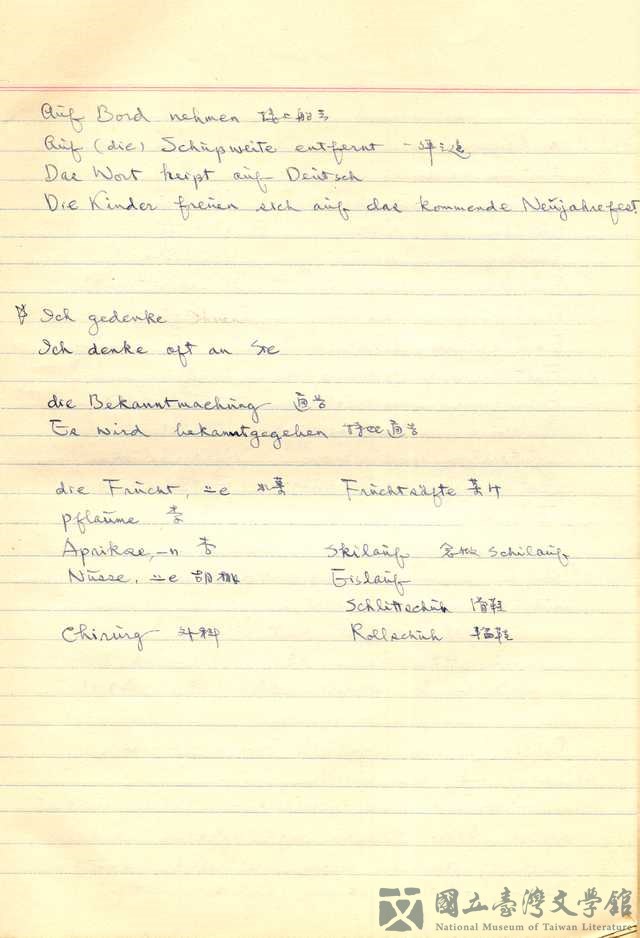 Auf Bord nehmen 接上船去
Auf (die) Schußweite entfernt 一
Das Wort heißt auf Deutsch
Die Kinder freuen sich auf das kommende Neujahrsfest.
Ich gedenke Ihnen
Ich denke oft an Sie
die Bekanntmachung 通告
Es wird bekanntgegeben 通告
die Frucht, ⸚e 水菓 Fruchtsäfte 菓汁
Pflaume 李
Aprikose, -n 杏 Skilauf Schilauf
Nüsse, ⸚e 胡桃 Eislauf
Schlittschuh 滑鞋
Chirurg 外科 Rollschuh 輪鞋
國立臺灣文學館
National Museum of Taiwan Literature